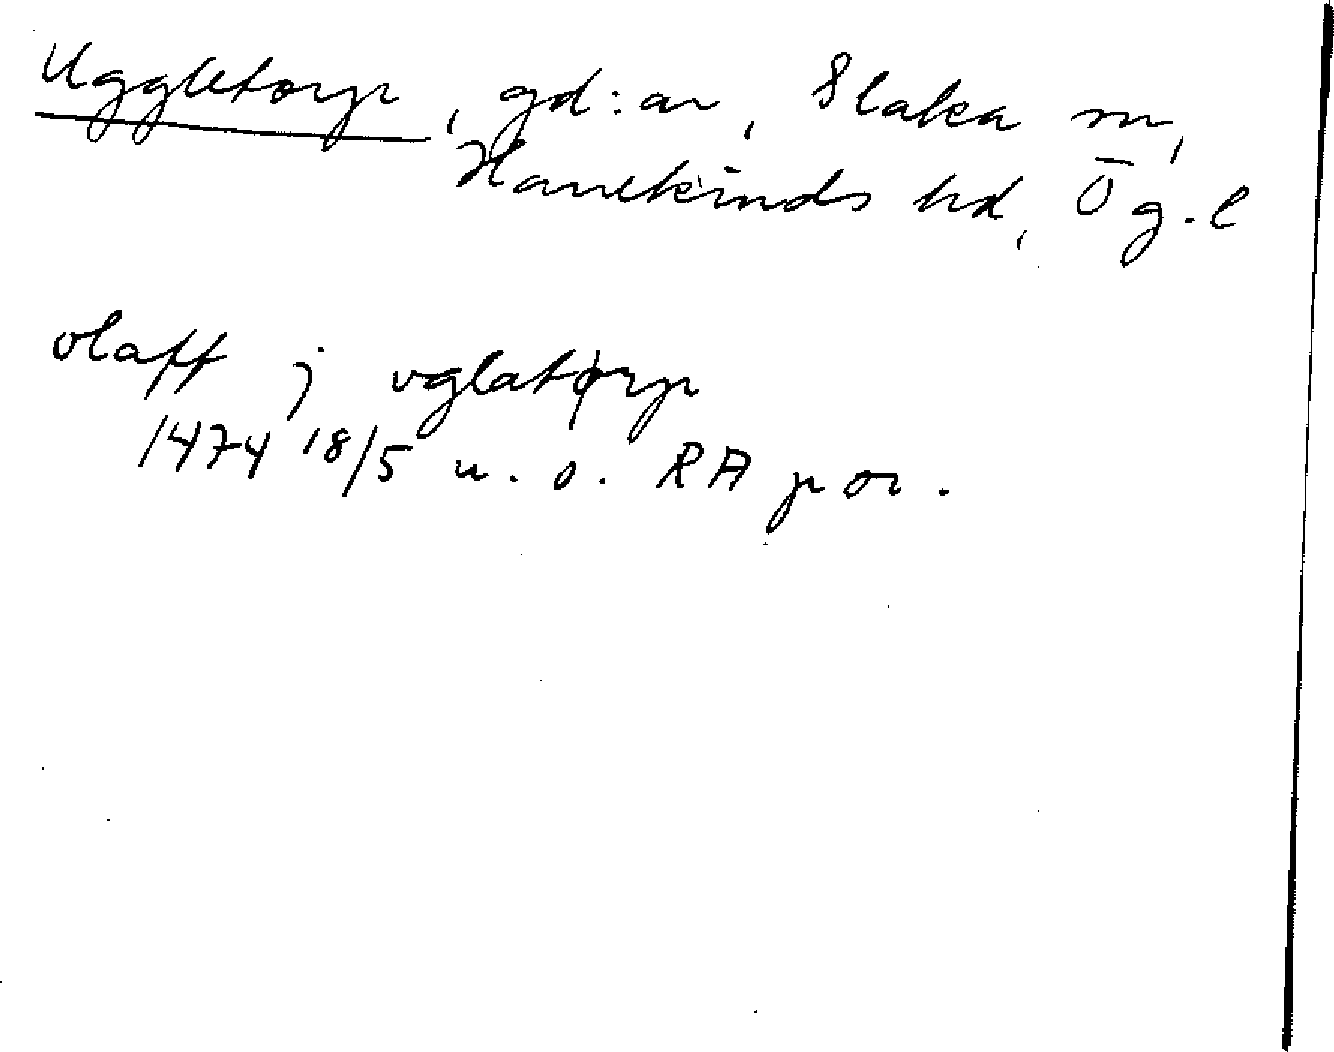 Uggletorp, gd:ar, Slaka sn,
Hanekinds hd, Ög.l
olaff j vglatørp
1474 18/5 u. o. RA por.